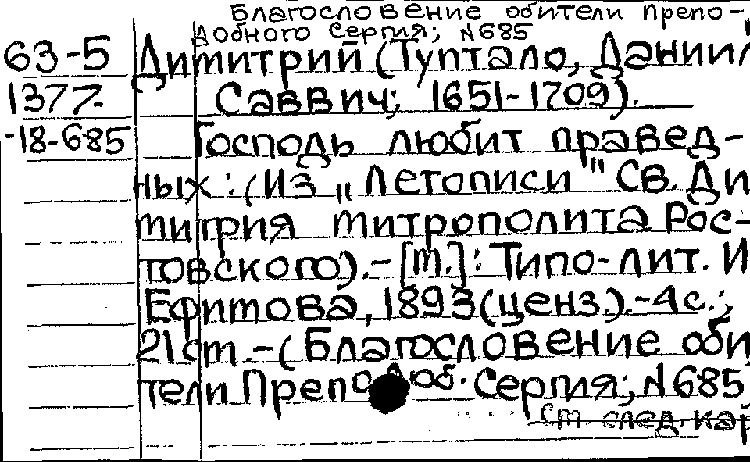 Благословение обители Препо-
добного Сергия; №685
63-5 Димитрий (Туптало, Даниил
1377- Саввич; 1651-1709).
-18-685 Господь любит правед-
ных: (Из „Летописи" Св. Ди
митрия митрополита Рос-
товского).-[М.]: Типо-лит. И
Ефимова, 1893(ценз).-4с.;
21см.-(Благословение оби
тели Преподоб. Сергия; №685
См след. кар